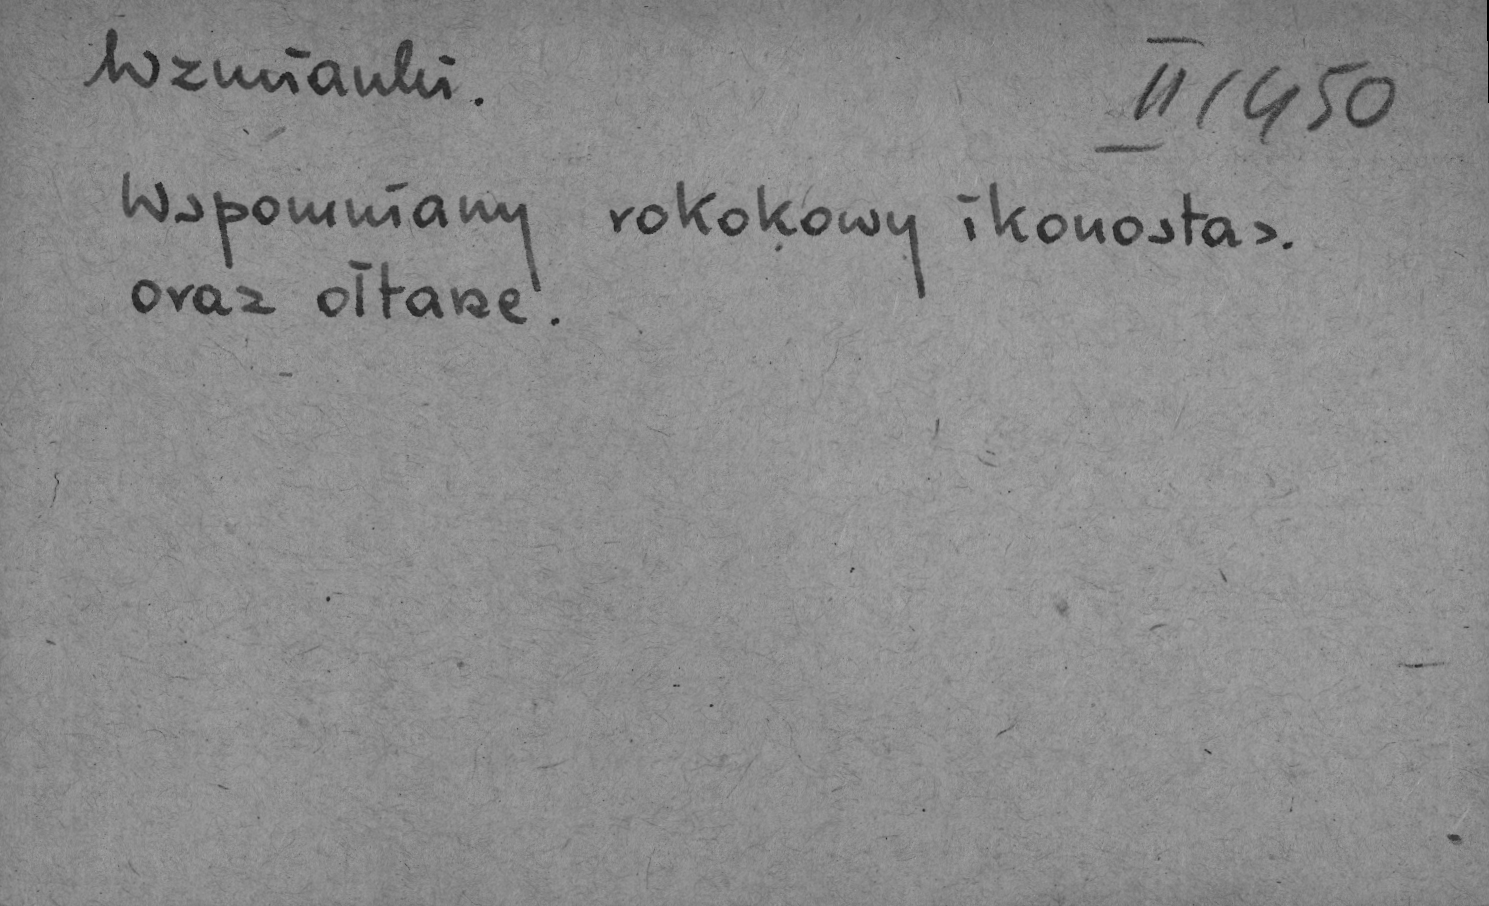 Wzmianki.
II/450
Wspomniany rokokowy ikonostas.
oraz ołtarze.